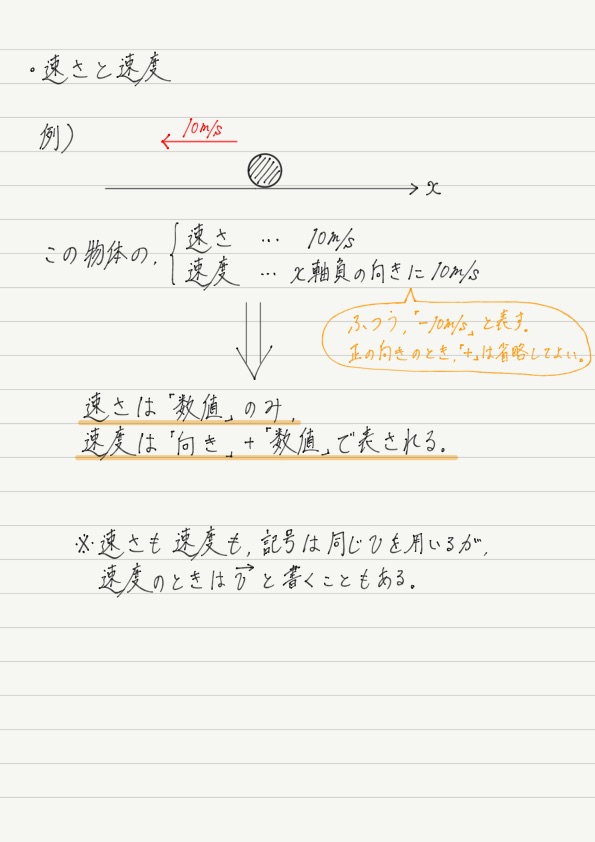 ・速さと速度
例)
10m/s
x
この物体の,
速さ … 10m/s
速度 … x軸負の向きに10m/s
ふつう,「-10m/s」と表す.
正の向きのとき,「+」は省略してよい。
速さは「数値」のみ,
速度は「向き」+「数値」で表される.
※速さも速度も,記号は同じvを用いるが,
速度のときはv→と書くこともある.